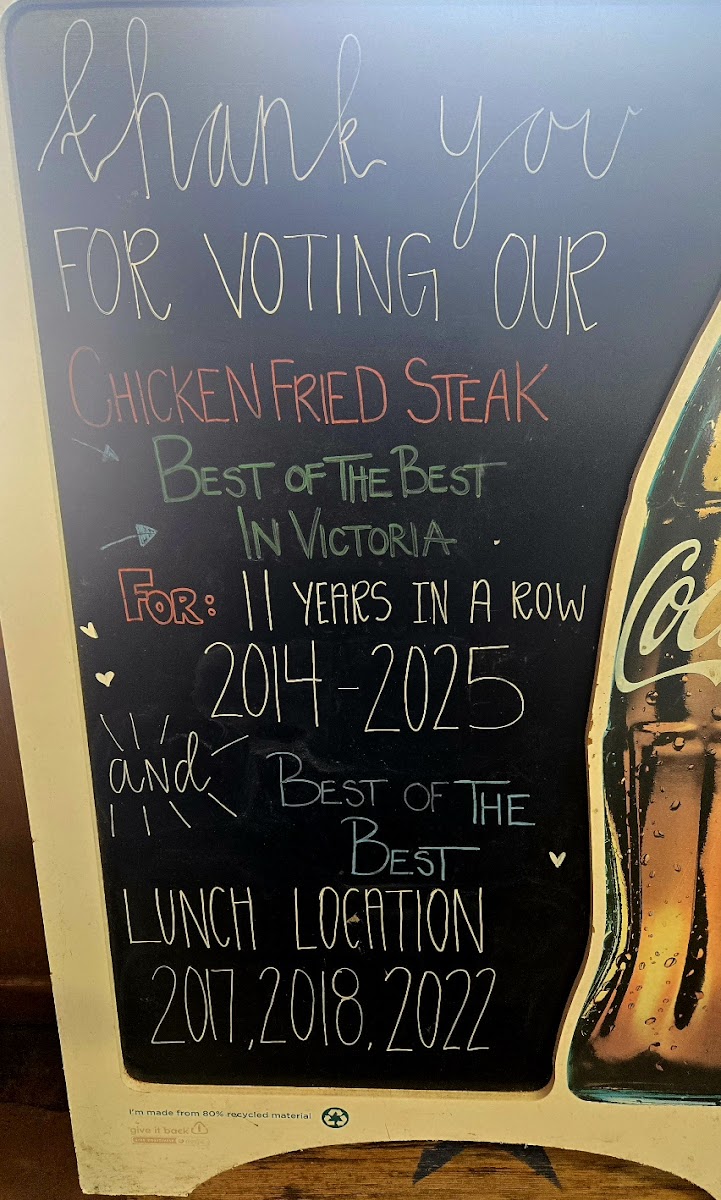 thank you
FOR VOTING OUR
CHICKEN FRIED STEAK
BEST OF THE BEST
IN VICTORIA
FOR: 11 YEARS IN A ROW
2014-2025
and BEST OF THE
BEST
LUNCH LOCATION
2017, 2018, 2022
I'm made from 80% recycled material
give it back